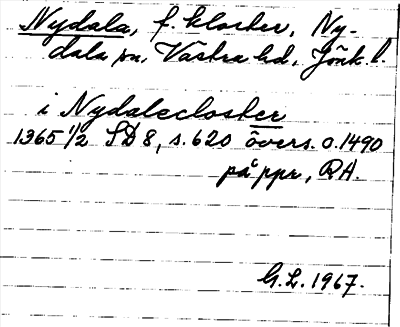 Nydala, f. kloster, Ny-
dala sn, Västra hd, Jönk. l.
i Nydalecloster
1365 1/2 SD 8, s. 620 övers. o. 1490
på ppr, RA.
G.L. 1967.